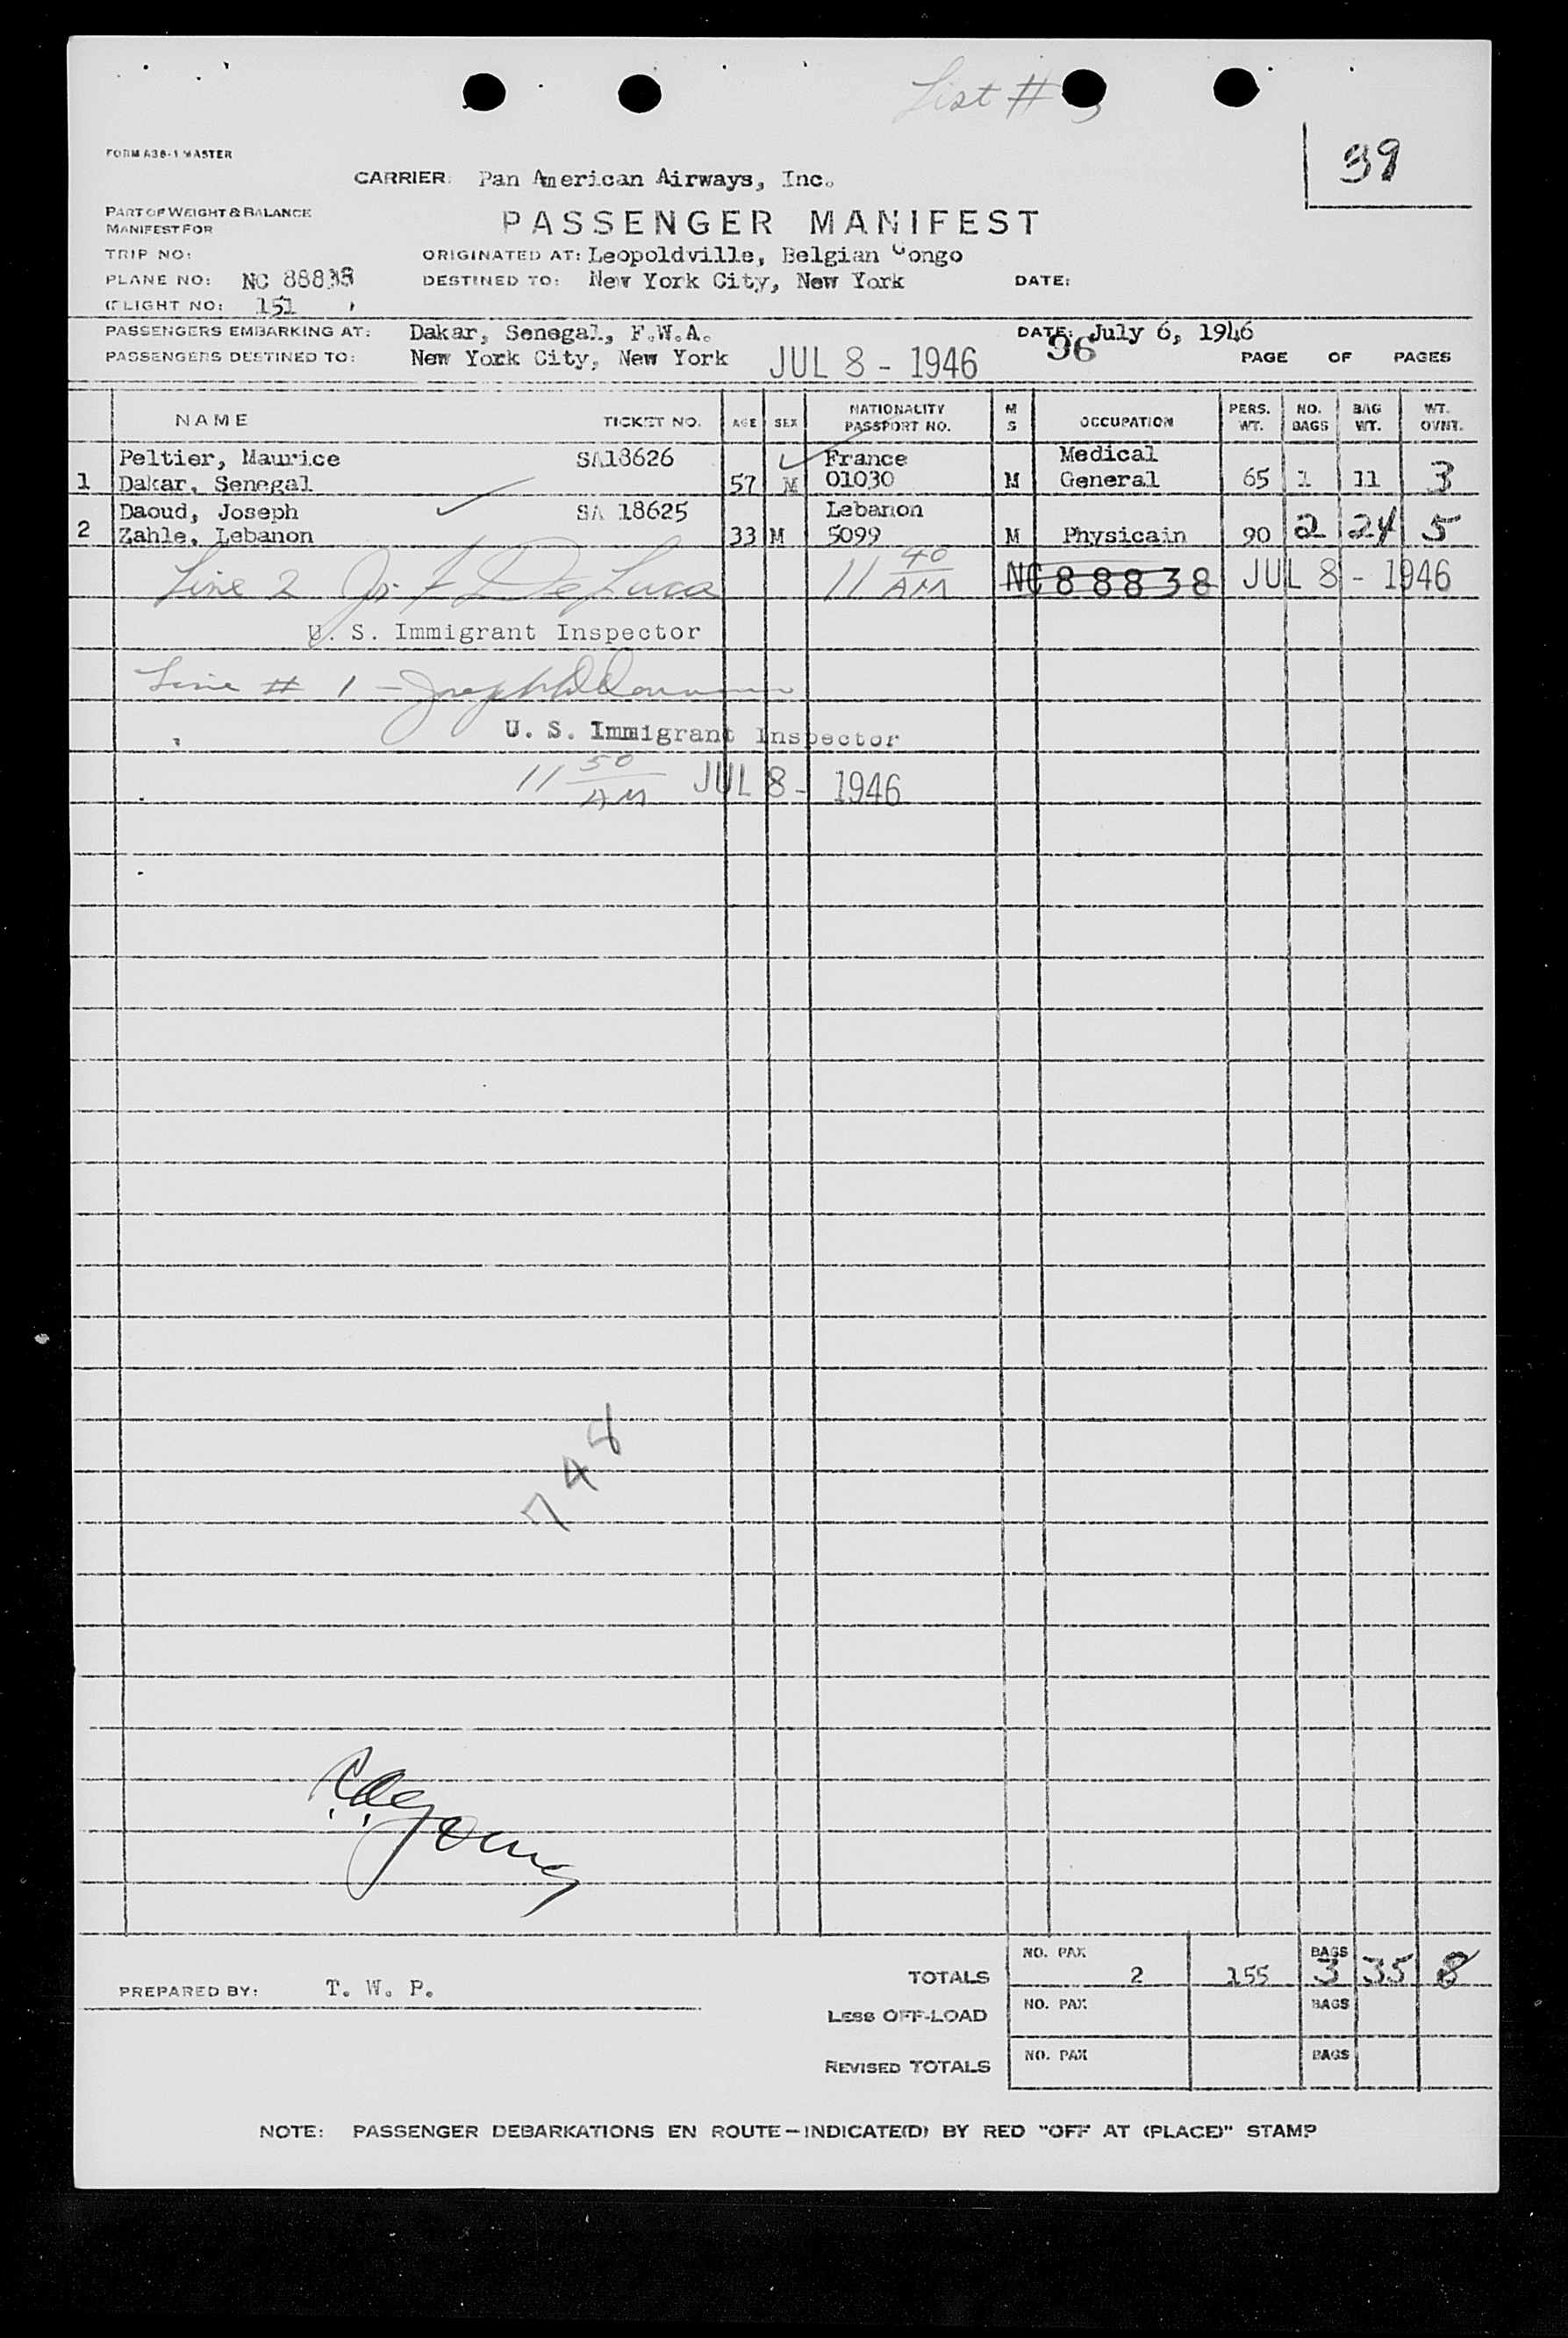 List #
39
FORM A36-1 MASTER
CARRIER: Pan American Airways, Inc.
PART OF WEIGHT & BALANCE
MANIFEST FOR
PASSENGER MANIFEST
TRIP NO:
ORIGINATED AT: Leopoldville, Belgian Congo
PLANE NO: NC 88838
DESTINED TO: New York City, New York
DATE:
FLIGHT NO: 151
PASSENGERS EMBARKING AT: Dakar, Senegal, F.W.A.
DATE: July 6, 1946
96
PASSENGERS DESTINED TO: New York City, New York
JUL 8 - 1946
PAGE OF PAGES
NAME TICKET NO. AGE SEX NATIONALITY PASSPORT NO. M S OCCUPATION PERS. WT. NO. BAGS BAG WT. WT. OVNT.
Peltier, Maurice SA18626 France Medical
1 Dakar, Senegal 57 M 01030 M General 65 1 11 3
Daoud, Joseph SA 18625 Lebanon
2 Zahle, Lebanon 33 M 5099 M Physicain 90 2 24 5
Line 2 De Luca 11 40 AM NC 88838 JUL 8 - 1946
U. S. Immigrant Inspector
Line # 1 - Joseph
U. S. Immigrant Inspector
11 50 AM JUL 8 - 1946
748
Young
TOTALS NO. PAX 2 155 BAGS 3 35 8
PREPARED BY: T. W. P.
LESS OFF-LOAD NO. PAX BAGS
REVISED TOTALS NO. PAX BAGS
NOTE: PASSENGER DEBARKATIONS EN ROUTE—INDICATE(D) BY RED "OFF AT (PLACE)" STAMP